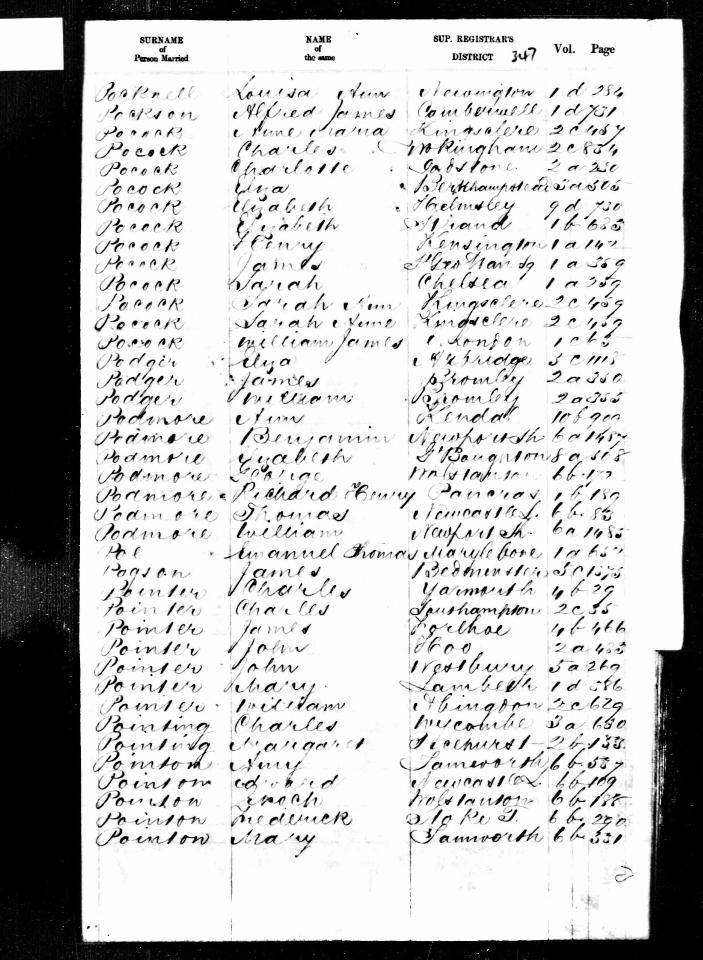 SURNAME of Person Married NAME of the same SUP. REGISTRAR'S DISTRICT 347 Vol. Page
Pocknell Louisa Ann Newington 1 d 284
Pockson Alfred James Camberwell 1 d 731
Pocock Anne Maria Kingsclere 2 c 457
Pocock Charles Wokingham 2 c 834
Pocock Charlotte Godstone 2 a 230
Pocock Eliza Berkhampstead 3 a 505
Pocock Elizabeth Helmsley 9 d 730
Pocock Elizabeth Strand 1 b 683
Pocock Henry Kensington 1 a
Pocock James St Geo Han Sq 1 a 359
Pocock Sarah Chelsea 1 a 259
Pocock Sarah Ann Kingsclere 2 c 459
Pocock Sarah Anne Kingsclere 2 c 459
Pocock William James London 1 c
Podger Eliza Axbridge 5 c 1118
Podger James Bromley 2 a 350
Podger William Bromley 2 a 355
Podmore Ann Kendal 10 b 900
Podmore Benjamin Newport Sh 6 a 1487
Podmore Elizabeth Gt Boughton 8 a 518
Podmore George Wolstanton 6 b
Podmore Richard Henry Pancras 1 b 189
Podmore Thomas Newcastle L. 6 b 83
Podmore William Newport Sh. 6 a 1485
Poe Emanuel Thomas Marylebone 1 a
Pogson James Bedminster 5 c
Pointer Charles Yarmouth 4 b 29
Pointer Charles Southampton 2 c 35
Pointer James Forehoe 4 b 466
Pointer John Hoo 2 a 483
Pointer John Westbury 5 a 269
Pointer Mary Lambeth 1 d 586
Pointer William Abingdon 2 c 629
Pointing Charles Wycombe 3 a 630
Pointing Margaret Ticehurst 2 b 133
Pointon Amy Tamworth 6 b 537
Pointon Edward Newcastle L. 6 b 109
Pointon Enoch Wolstanton 6 b 188
Pointon Frederick Stoke T. 6 b 290
Pointon Mary Tamworth 6 b 531